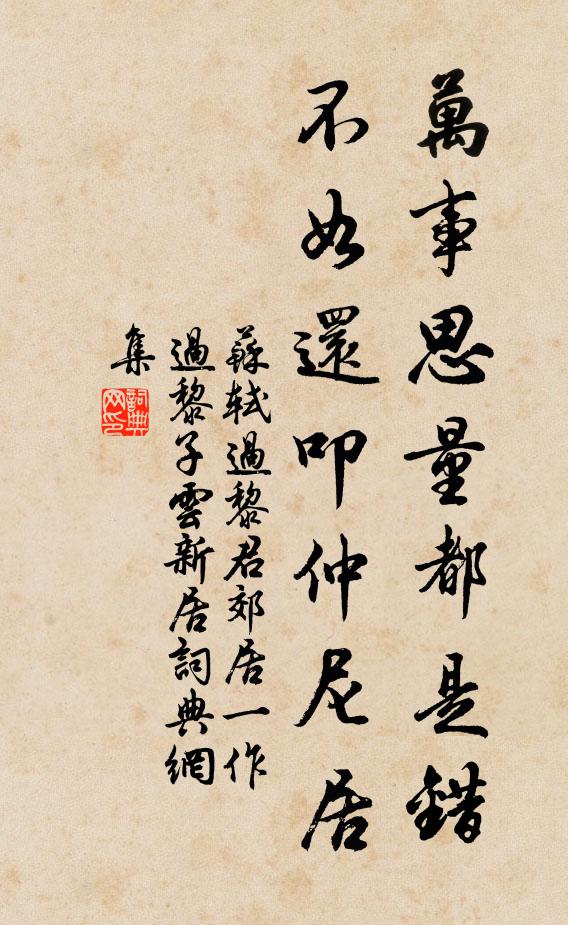 萬事思量都是錯
不如還叩仲尼居
蘇軾過黎君郊居一作
過黎子雲新居詞典網
集
詞典
网印